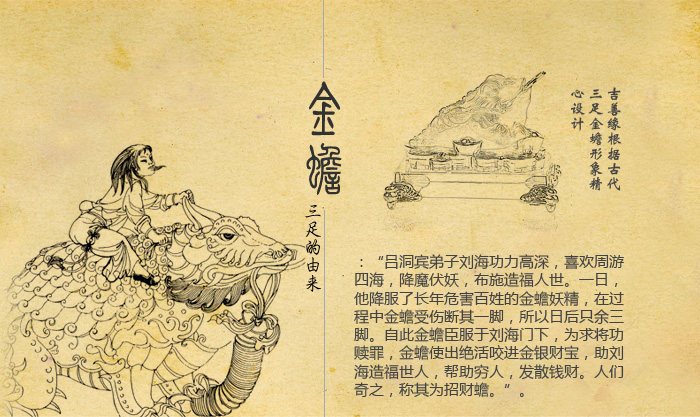 金蟾
三足的由来
吉善缘根据古代
三足金蟾形象精
心设计
：“吕洞宾弟子刘海功力高深，喜欢周游
四海，降魔伏妖，布施造福人世。一日，
他降服了长年危害百姓的金蟾妖精，在过
程中金蟾受伤断其一脚，所以日后只余三
脚。自此金蟾臣服于刘海门下，为求将功
赎罪，金蟾使出绝活咬进金银财宝，助刘
海造福世人，帮助穷人，发散钱财。人们
奇之，称其为招财蟾。”。